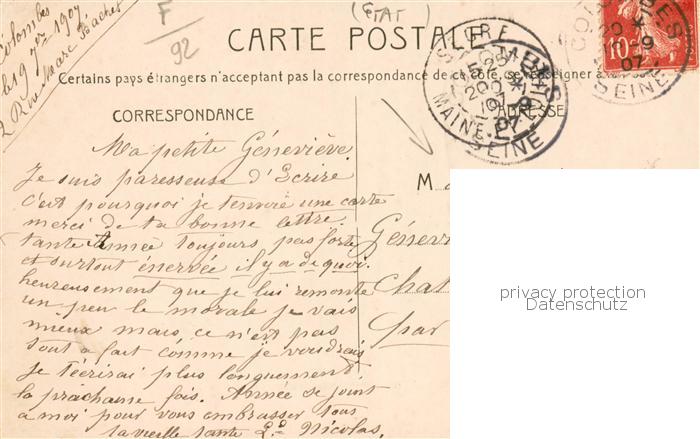 Colombes
le 19 7bre 1907
2 Rue Marc
F/92
(ETAT)
CARTE POSTALE
Certains pays étrangers n'acceptant pas la correspondance de ce côté, se renseigner à
CORRESPONDANCE
ADRESSE
Ma petite Géneviève
Je suis paresseuse d'Ecrire
C'est pourquoi je t'envoie une carte
merci de ta bonne lettre.
tante Année toujours pas forte
et surtout énervée il y a de quoi.
heureusement que je lui remonte
un peu le morale je vais
mieux mais ce n'est pas
tout a fait comme je voudrais
je t'écrirai plus longuement
la prochaine fois. Année se joint
a moi pour vous embrasser tous
ta vieille tante Nicolas.
SEGRE
MAINE
COLOMBES
19-9
07
SEINE
COLOMBES
07
SEINE
10
M
Génevi
Chat
par
privacy protection
Datenschutz